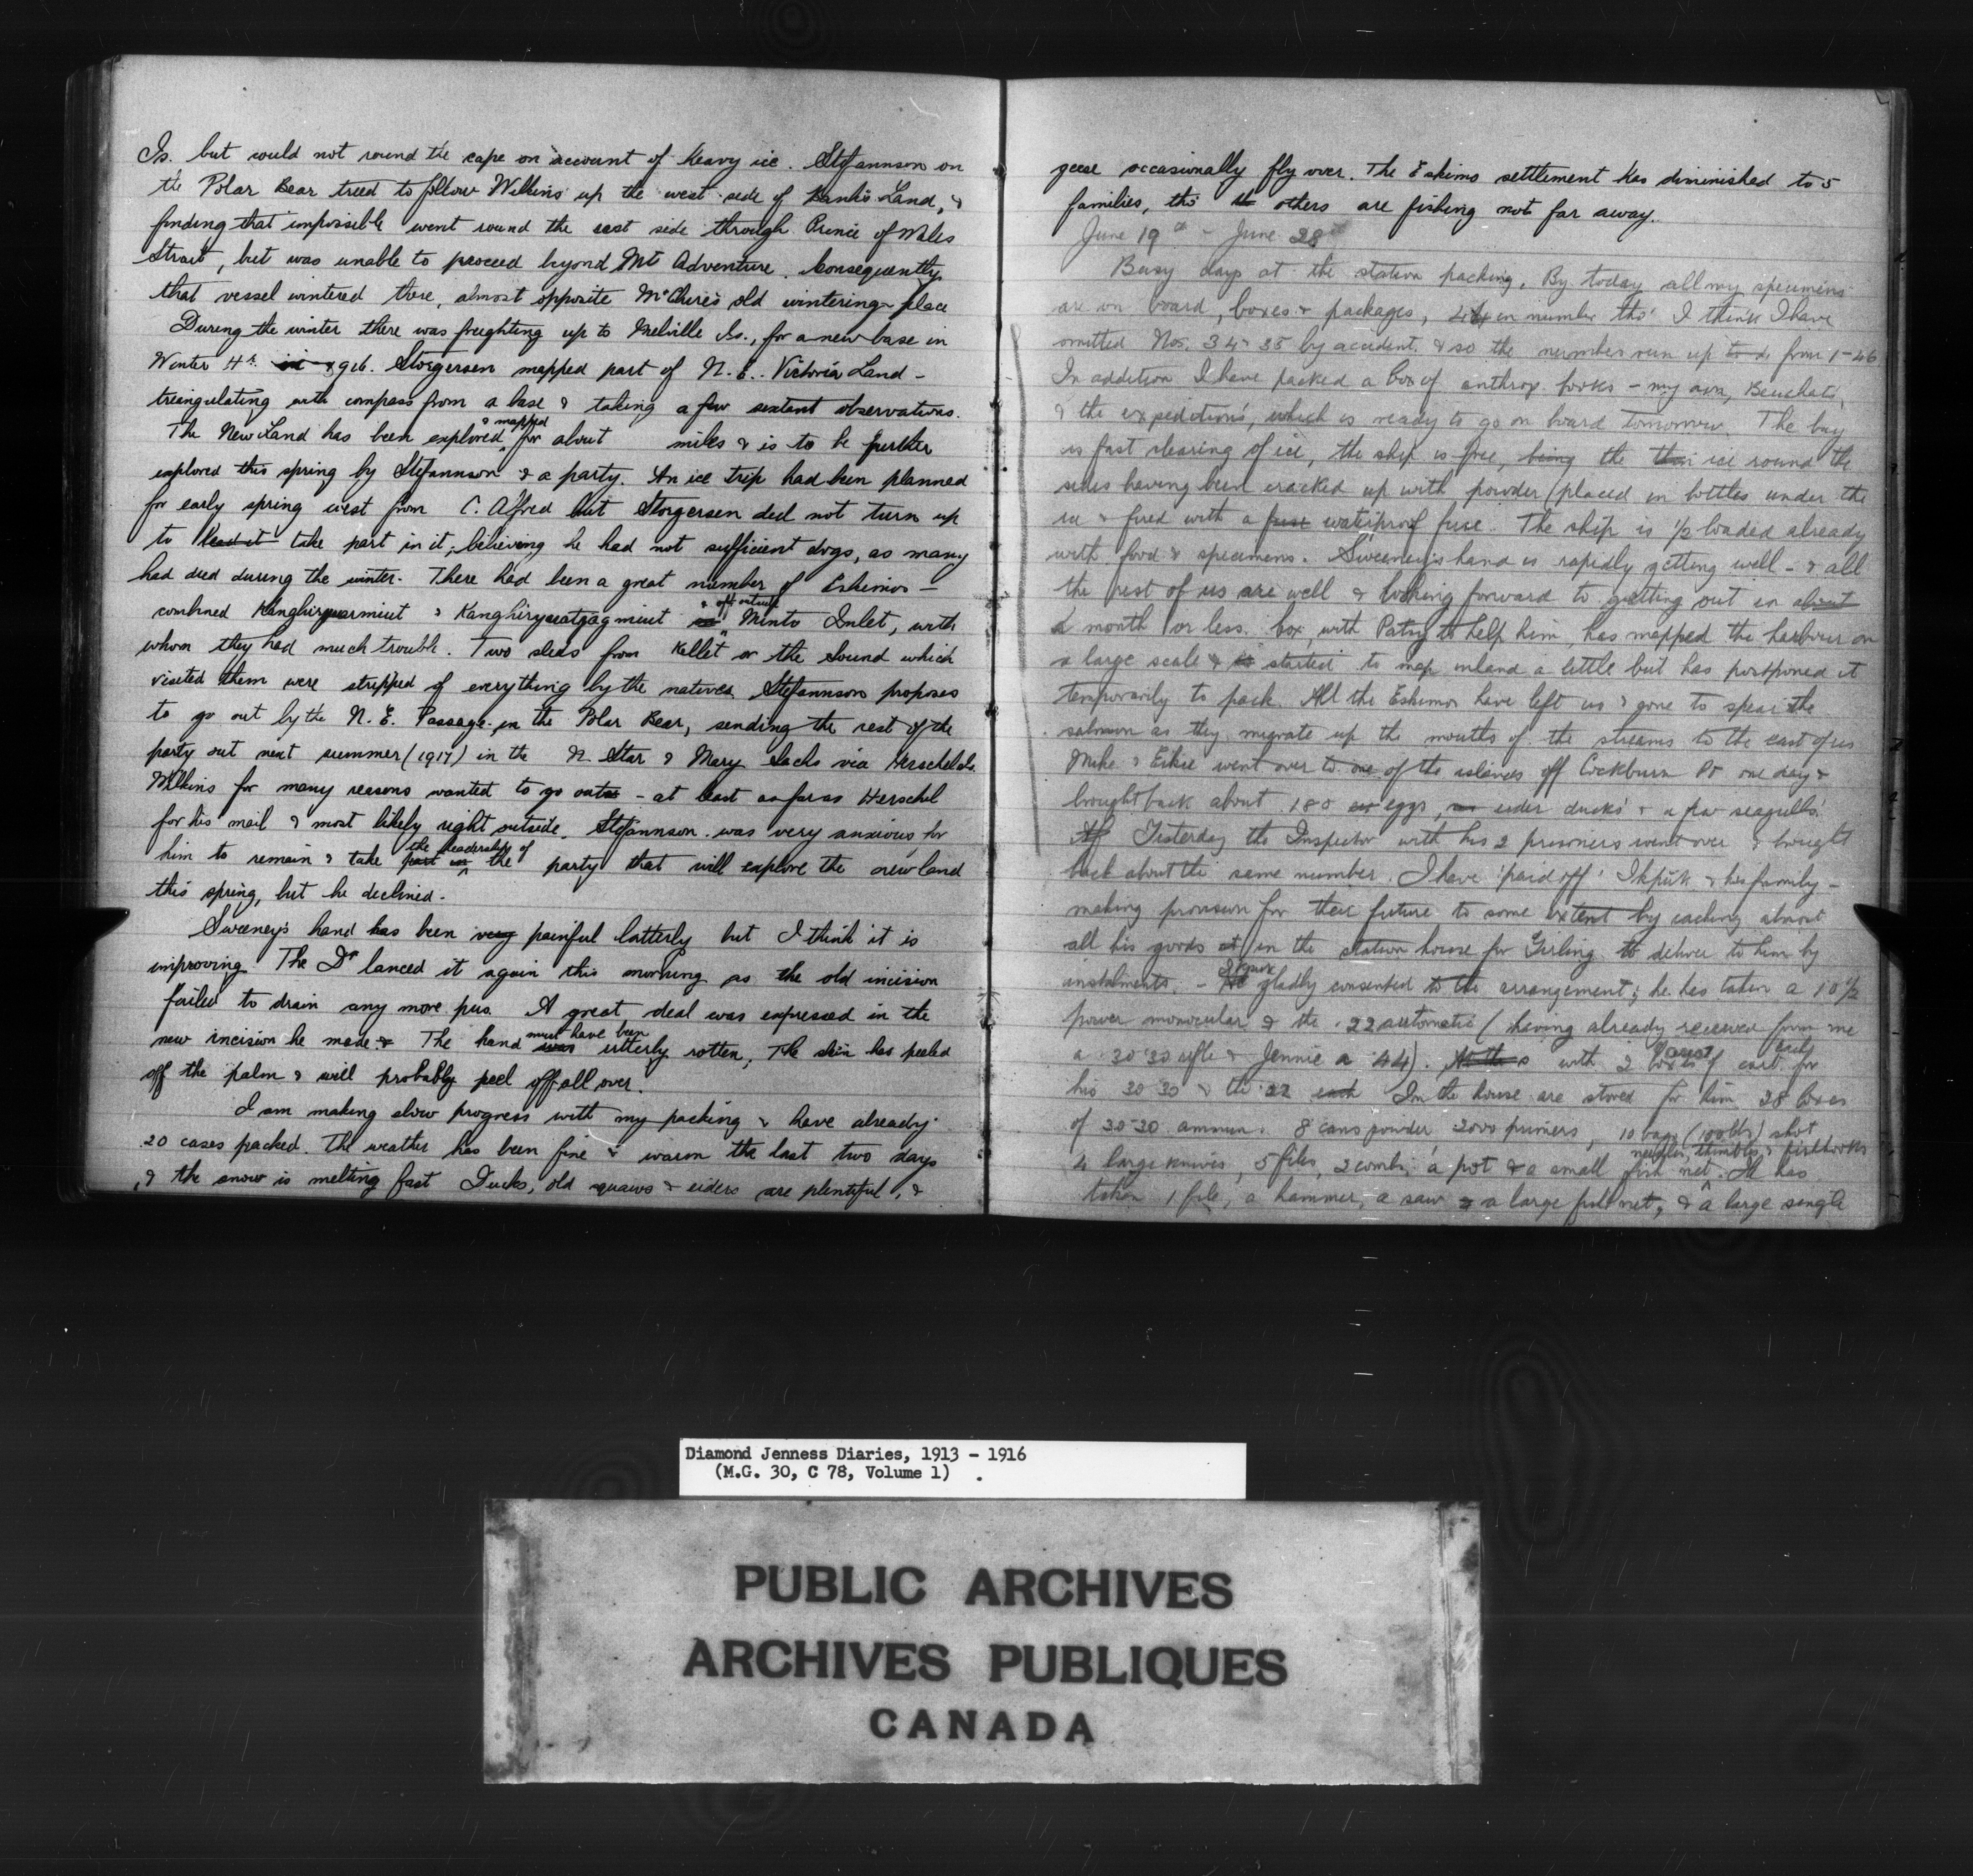 Is. but could not round the cape on account of heavy ice. Stefannson on
the Polar Bear tried to follow Wilkins up the west side of Banks Land, &
finding that impossible went round the east side through Prince of Wales
Strait, but was unable to proceed beyond Mt Adventure. Consequently
that vessel wintered there, almost opposite McClure's old wintering place
During the winter there was freighting up to Melville Is., for a new base in
Winter Hr. Storgersen mapped part of N. E. Victoria Land -
triangulating with compass from a base & taking a few sextant observations.
The New Land has been explored & mapped for about miles & is to be further
explored this spring by Stefannson & a party. An ice trip had been planned
for early spring west from C. Alfred but Storgersen did not turn up
to lead it take part in it, believing he had not sufficient dogs, as many
had died during the winter. There had been a great number of Eskimos -
combined Kanghiryuarmiut & Kanghiryuatjagmiut & off outside Minto Inlet, with
whom they had much trouble. Two sleds from Kellet or the Sound which
visited them were stripped of everything by the natives. Stefannson proposes
to go out by the N. E. Passage in the Polar Bear, sending the rest of the
party out next summer (1917) in the N. Star & Mary Sachs via Herschel Is.
Wilkins for many reasons wanted to go out - at least as far as Herschel
for his mail & most likely right outside. Stefannson was very anxious for
him to remain & take part in the leadership of the party that will explore the new land
this spring, but he declined.
Sweeney's hand has been very painful latterly but I think it is
improving. The Dr lanced it again this morning as the old incision
failed to drain any more pus. A great deal was expressed in the
new incision he made & The hand was must have been utterly rotten; The skin has peeled
off the palm & will probably peel off all over.
I am making slow progress with my packing & have already
20 cases packed. The weather has been fine & warm the last two days
& the snow is melting fast Ducks, old squaws & eiders are plentiful, &
geese occasionally fly over. The Eskimo settlement has diminished to 5
families, tho' the others are fishing not far away.
June 19th - June 28th
Busy days at the station packing. By today all my specimens
are on board, boxes & packages, 44 in number tho' I think I have
omitted Nos. 34 & 35 by accident & so the numbers run up to from 1-46
In addition I have packed a box of anthrop. books - my own, Beuchat's,
& the expedition's, which is ready to go on board tomorrow. The bay
is fast clearing of ice, the ship is free, being the thin ice round the
sides having been cracked up with powder (placed in bottles under the
ice & fired with a fuse waterproof fuse. The ship is 1/2 loaded already
with food & specimens. Sweeney's hand is rapidly getting well - & all
the rest of us are well & looking forward to getting out in about
a month or less. Cox, with Patsy to help him, has mapped the harbour on
a large scale & started to map inland a little but has postponed it
temporarily to pack. All the Eskimos have left us & gone to spear the
salmon as they migrate up the mouths of the streams to the east of us
Mike & Eikie went over to one of the islands off Cockburn Pt one day &
brought back about 180 eggs, eider ducks' & a few seagulls'.
Yesterday the Inspector with his 2 prisoners went over & brought
back about the same number. I have 'paid off' Ikpuk & his family -
making provision for their future to some extent by caching almost
all his goods at in the station house for Girling to deliver to him by
instalments. - He Ikpuk gladly consented to the arrangement; he has taken a 10 1/2
power monocular & the .22 automatic (having already received from me
a 30·30 rifle & Jennie a ·44). with 2 boxes of cart. each for
his 30·30 & the 22 each In the house are stored for him 28 boxes
of 30·30 ammun. 8 cans powder 2000 primers, 10 bags (100 lbs) shot
4 large knives, 5 files, 2 combs, a pot & a small fish net needles, thimbles, & fishhooks. He has
taken 1 file, a hammer, a saw & a large fish net, & a large single
Diamond Jenness Diaries, 1913 - 1916
(M.G. 30, C 78, Volume 1)
PUBLIC ARCHIVES
ARCHIVES PUBLIQUES
CANADA